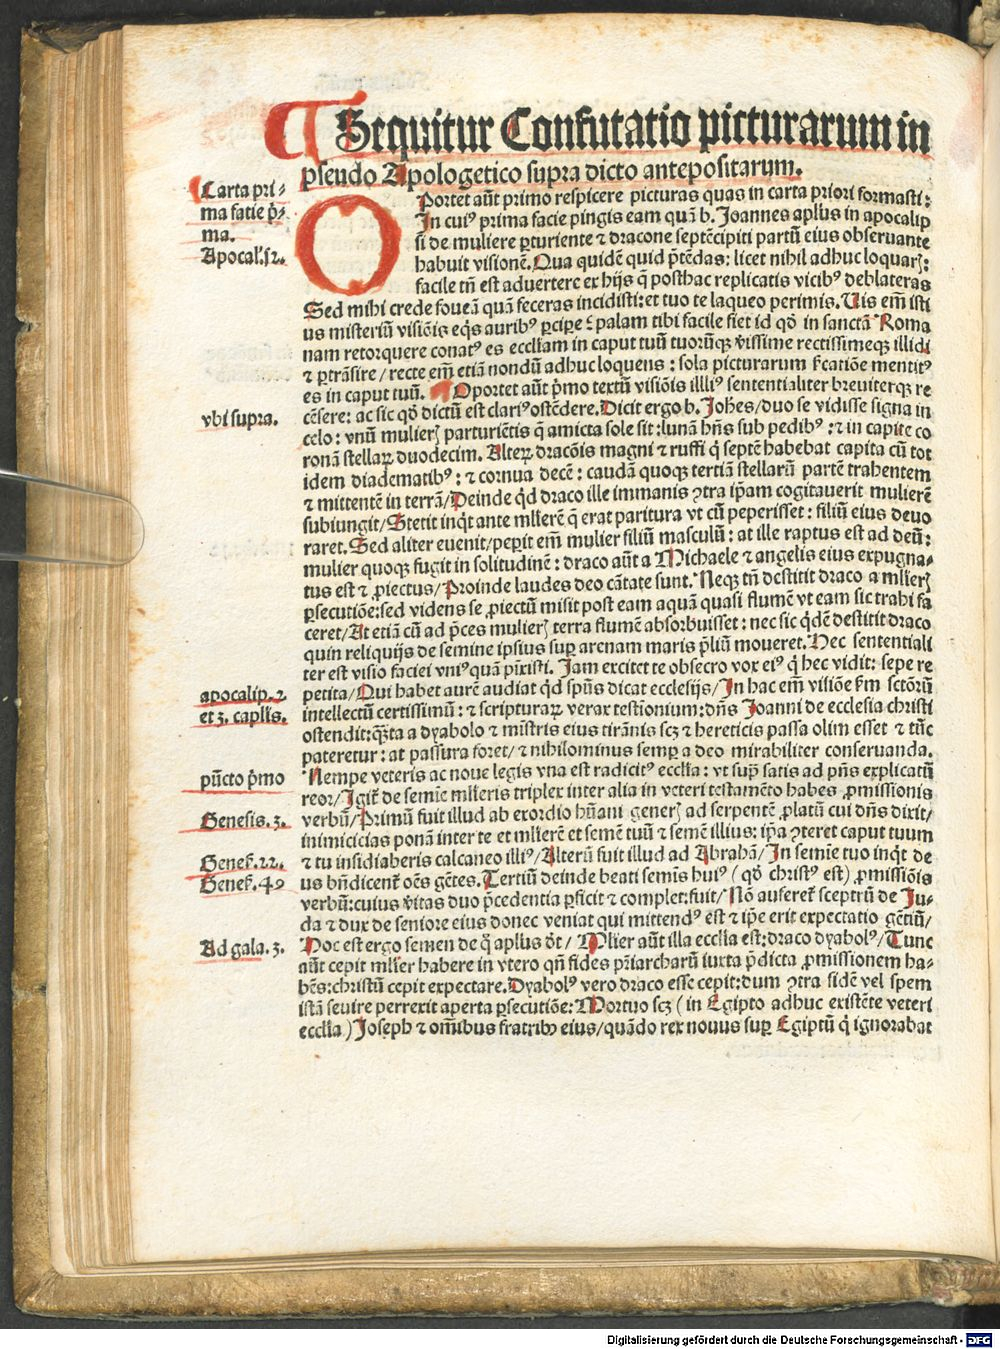 Sequitur Confutatio picturarum in
pseudo Apologetico supra dicto antepositarum.
Carta pri-
ma facie p̄-
ma.
Apocal. 12.
Oportet aūt primo respicere picturas quas in carta priori formasti:
In cuiꝰ prima facie pingis eam quā b. Joannes apl̄us in apocalip
si de muliere ꝑturiente ⁊ dracone septēcipiti partū eius obseruante
habuit visionē. Qua quidē quid p̄tēdas: licet nihil adhuc loquarꝫ:
facile tn̄ est aduertere ex hijs q̄ posthac replicatis vicibꝰ deblateras
Sed mihi crede foueā quā feceras incidisti: et tuo te laqueo perimis. Uis em̄ isti
us misteriū visiōis eq̄s auribꝰ ꝑcipe ⁊ palam tibi facile fiet id qd̄ in sanctā Roma
nam retorquere conatꝰ es eccl̄iam in caput tuū tuorūqꝫ v̄issime rectissimeqꝫ illidi
⁊ ꝑtrāsire / recte em̄ etiā nondū adhuc loquens: sola picturarum f̄catiōe mentitꝰ
es in caput tuū. Oportet aūt p̄mo textū visiōis illiꝰ sententialiter breuiterqꝫ re
vbi supra.
cēsere: ac sic qd̄ dictū est clariꝰ ostēdere. Dicit ergo b. Joh̄es / duo se vidisse signa in
celo: vnū mulierꝫ parturiētis q̄ amicta sole sit: lunā hn̄s sub pedibꝰ: ⁊ in capite co
ronā stellaꝝ duodecim. Alteꝝ dracōis magni ⁊ ruffi q̄ septē habebat capita cū tot
idem diadematibꝰ: ⁊ cornua decē: caudā quoqꝫ tertiā stellarū partē trahentem
⁊ mittentē in terrā / Deinde qd̄ draco ille immanis ꝯtra ip̄am cogitauerit mulierē
subiungit / Stetit inq̄t ante ml̄ierē q̄ erat paritura vt cū peperisset: filiū eius deuo
raret. Sed aliter euenit / peꝑit em̄ mulier filiū masculū: at ille raptus est ad deū:
mulier quoqꝫ fugit in solitudinē: draco aūt a Michaele ⁊ angelis eius expugna-
tus est ⁊ ꝓiectus / Proinde laudes deo cātate sunt. Neqꝫ tn̄ destitit draco a ml̄ierꝫ
ꝑsecutiōe: sed videns se ꝓiectū misit post eam aquā quasi flumē vt eam sic trahi fa
ceret / At etiā cū ad p̄ces mulierꝫ terra flumē absorbuisset: nec sic q̄dē destitit draco
quin reliquijs de semine ipsius suꝑ arenam maris p̄liū moueret. Hec sententiali
ter est visio faciei vniꝰ quā pīxisti. Jam excitet te obsecro vox eiꝰ q̄ hec vidit: sepe re
apocalip. 2
petita / Qui habet aurē audiat qd̄ spūs dicat ecclesijs / In hac em̄ visiōe fm̄ sctōrū
et 3. caplīs.
intellectū certissimū: ⁊ scripturaꝝ verax testioniū: dn̄s Joanni de ecclesia christi
ostendit: q̄ta a dyabolo ⁊ mīstris eius tirānis scꝫ ⁊ hereticis passa olim esset ⁊ tūc
pateretur: at passura foret / ⁊ nihilominus semꝑ a deo mirabiliter conseruanda.
pūcto p̄mo
Nempe veteris ac noue legis vna est radicitꝰ eccl̄ia: vt sup̄ satis ad pn̄s explicatū
reor / Igit̄ de semīe ml̄ieris triplex inter alia in veteri testamēto habes ꝓmissionis
Genesis. 3.
verbū / Primū fuit illud ab exordio hūani generꝫ ad serpentē ꝓlatū cui dn̄s dixit /
inimicicias ponā inter te et ml̄ierē et semē tuū ⁊ semē illius: ip̄a ꝯteret caput tuum
Genes̄. 22.
⁊ tu insidiaberis calcaneo illiꝰ / Alterū fuit illud ad Abrahā / In semīe tuo inq̄t de
Genes̄. 49
us bn̄dicent̄ oēs gētes. Tertiū deinde beati semīs huiꝰ (qd̄ christꝰ est) ꝓmissiōis
verbū: cuius v̄itas duo p̄cedentia ꝑficit ⁊ complet: fuit / Nō auferet̄ sceptrū de Ju-
da ⁊ dux de seniore eius donec veniat qui mittendꝰ est ⁊ ip̄e erit expectatio gētiū /
Ad gala. 3.
Hoc est ergo semen de q̄ apl̄us dt̄ / Ml̄ier aūt illa eccl̄ia est: draco dyabolꝰ / Tunc
aūt cepit ml̄ier habere in vtero qn̄ fides pr̄iarcharū iuxta p̄dicta ꝓmissionem ha-
bēs: christū cepit expectare. Dyabolꝰ vero draco esse cepit: dum ꝯtra fidē vel spem
istā seuire perrexit aperta ꝑsecutiōe: Mortuo scꝫ (in Egipto adhuc existēte veteri
eccl̄ia) Joseph ⁊ om̄ibus fratribꝰ eius / quādo rex nouus suꝑ Egiptū q̄ ignorabat
Digitalisierung gefördert durch die Deutsche Forschungsgemeinschaft - DFG